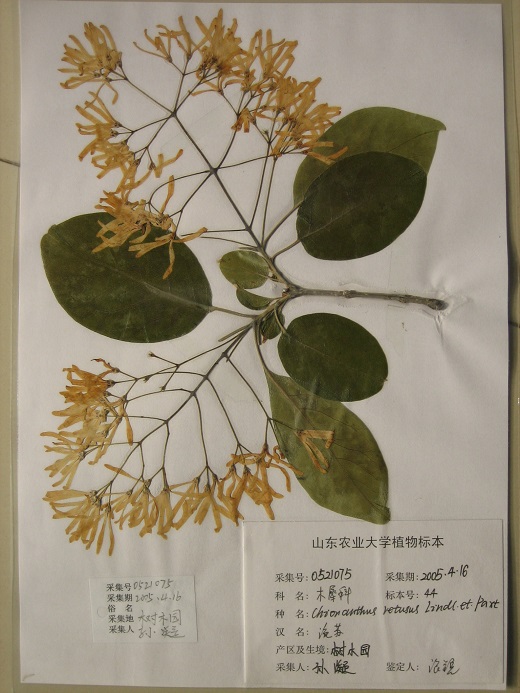 采集号0521075
采集期 2005.4.16
采集地 树木园
(俗 名
采集人
山东农业大学植物标本
采集号: 0521075 采集期: 2005.4.16
科 名: 木犀科 标本号: 44
种 名: Chionanthus retusus Lindl. et. Paxt
汉 名: 流苏
产区及生境: 树木园
采集人: 鉴定人: